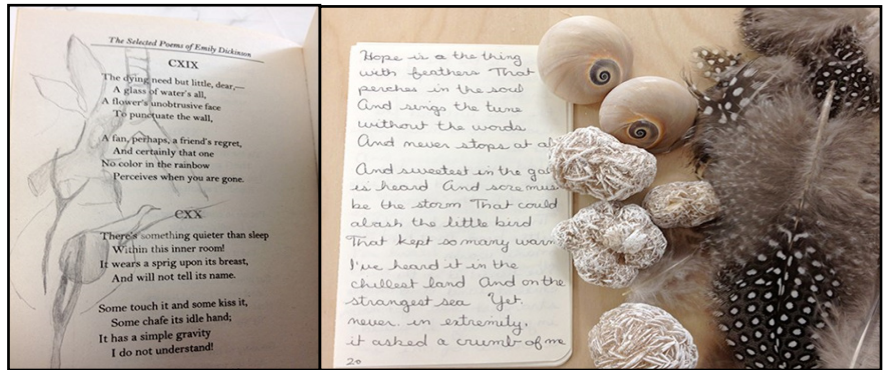 The Selected Poems of Emily Dickinson
CXIX
The dying need but little, dear,—
A glass of water's all,
A flower's unobtrusive face
To punctuate the wall,
A fan, perhaps, a friend's regret,
And certainly that one
No color in the rainbow
Perceives when you are gone.
CXX
There's something quieter than sleep
Within this inner room!
It wears a sprig upon its breast,
And will not tell its name.
Some touch it and some kiss it,
Some chafe its idle hand;
It has a simple gravity
I do not understand!
Hope is a the thing
with feathers That
perches in the soul
And sings the tune
without the words
And never stops at al
And sweetest in the ga
is heard And sore mus
be the storm That could
abash the little bird
That kept so many warm
I've heard it in the
chillest land And on the
strangest sea Yet.
never. in extremity,
it asked a crumb of me
20